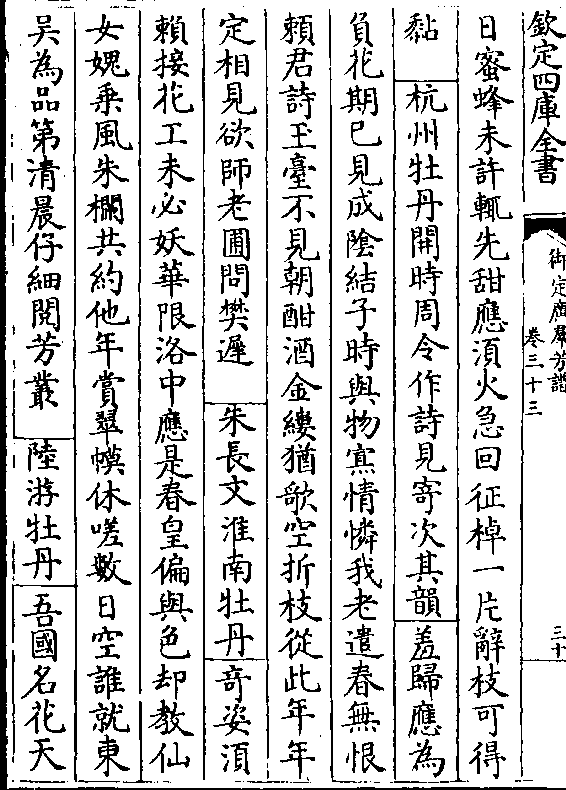 欽定四庫全書
御定廣羣芳譜
卷三十三
三十
日蜜蜂未許輒先甜應湏火急回征棹一片辭枝可得
黏 杭州牡丹開時周令作詩見寄次其韻 羞歸應為
負花期已見成陰結子時與物寡情憐我老遣春無恨
賴君詩玉臺不見朝酣酒金縷猶歌空折枝從此年年
定相見欲師老圃問樊遲 朱長文淮南牡丹 竒姿湏
賴接花工未必妖華限洛中應是春皇偏與色却教仙
女媿乗風朱欄共約他年賞翠幙休嗟數日空誰就東
吴為品第清晨仔細閱芳叢 陸游牡丹 吾國名花天